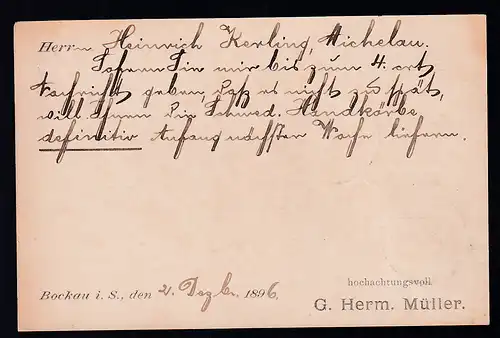 Herrn Heinrich Kerling, Michelau.
Sofern Sie mir bis zum 4. crt
Nachricht geben, daß es nicht zu spät,
will Ihnen die Schwed. Handkörbe
definitiv Anfang nächsten Woche liefern.
Bockau i. S., den 2. Dezbr. 1896.
hochachtungsvoll
G. Herm. Müller.